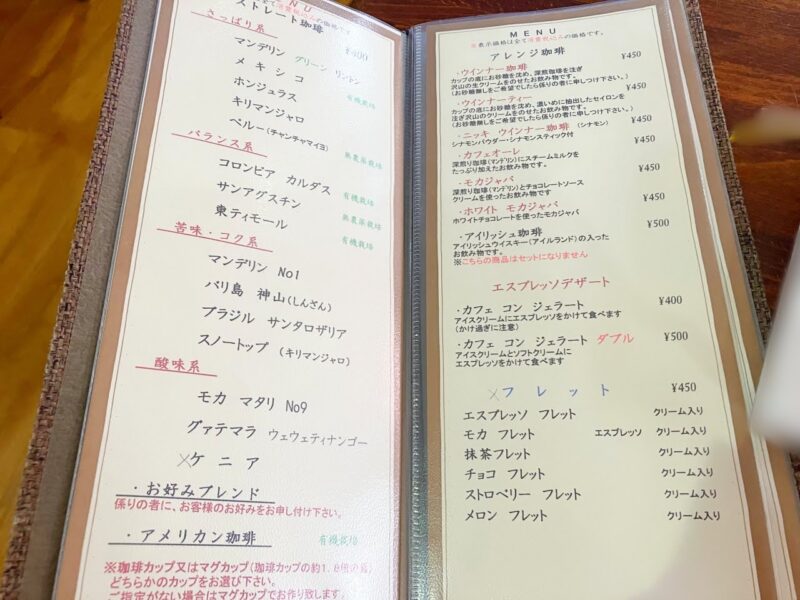 ストレート珈琲
の価格です
さっぱり系
¥400
マンデリン グリーン リントン
メキシコ
有機栽培
ホンジュラス
キリマンジャロ
ペルー(チャンチャマイヨ)
無農薬栽培
バランス系
コロンビア カルダス
有機栽培
サンアグスチン
無農薬栽培
東ティモール
有機栽培
苦味・コク系
マンデリン No1
バリ島 神山(しんざん)
ブラジル サンタロザリア
スノートップ (キリマンジャロ)
酸味系
モカ マタリ No9
グァテマラ ウェウェティナンゴー
×ケニア
・お好みブレンド
係りの者に、お客様のお好みをお申し付け下さい。
・アメリカン珈琲 有機栽培
※珈琲カップ又はマグカップ(珈琲カップの約1.
どちらかのカップをお選び下さい。
ご指定がない場合はマグカップでお作り致します
MENU
※表示価格は全て消費税込みの価格です。
アレンジ珈琲
・ウインナー珈琲 ¥450
カップの底にお砂糖を沈め、深煎珈琲を注ぎ
沢山の生クリームをのせたお飲み物です。
(お砂糖無しをご希望でしたら係りの者に申しつけ下さい。)
・ウインナーティー ¥450
カップの底にお砂糖を沈め、濃いめに抽出したセイロンを
注ぎ沢山のクリームをのせたお飲み物です。
(お砂糖無しをご希望でしたら係りの者に申し付け下さい。)
・ニッキ ウインナー珈琲 (シナモン) ¥450
シナモンパウダー・シナモンスティック付
・カフェオーレ ¥450
深煎り珈琲(マンデリン)にスチームミルクを
たっぷり加えたお飲み物です。
・モカジャバ ¥450
深煎り珈琲(マンデリン)とチョコレートソース
クリームを使ったお飲み物です
・ホワイト モカジャバ ¥450
ホワイトチョコレートを使ったモカジャバ
・アイリッシュ珈琲 ¥500
アイリッシュウイスキー(アイルランド)の入った
お飲み物です。
※こちらの商品はセットになりません
エスプレッソデザート
・カフェ コン ジェラート ¥400
アイスクリームにエスプレッソをかけて食べます
(かけ過ぎに注意)
・カフェ コン ジェラート ダブル ¥500
アイスクリームとソフトクリームに
エスプレッソをかけて食べます
×フレット ¥450
エスプレッソ フレット クリーム入り
モカ フレット エスプレッソ クリーム入り
抹茶フレット クリーム入り
チョコ フレット クリーム入り
ストロベリー フレット クリーム入り
メロン フレット クリーム入り